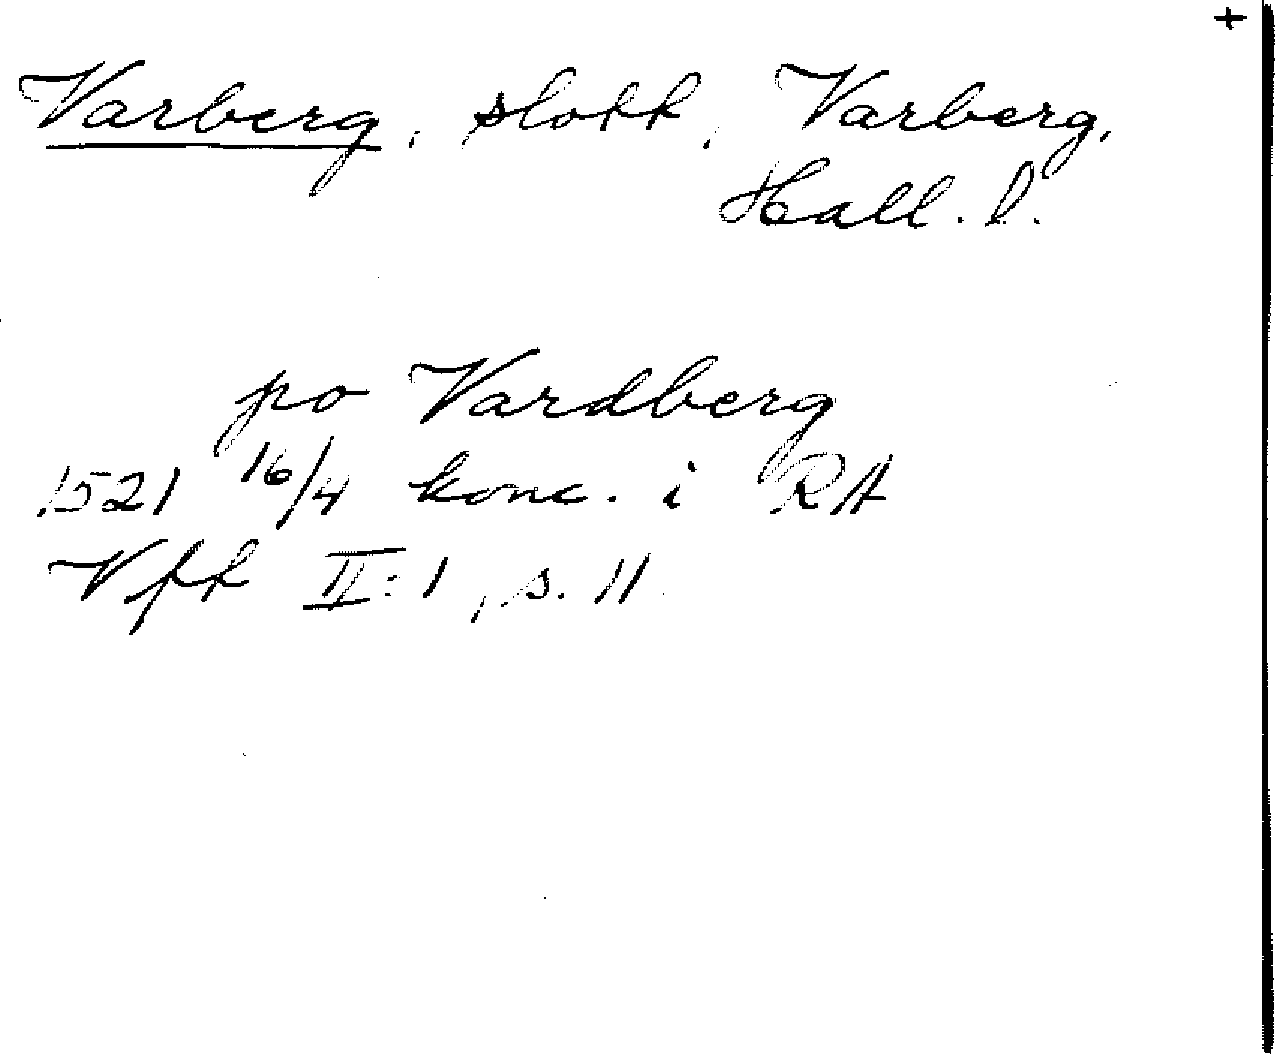 +
Varberg, slott, Varberg,
Hall. l.
po Vardberg
1521 16/4 konc. i RA
Vftt II:1, s. 11